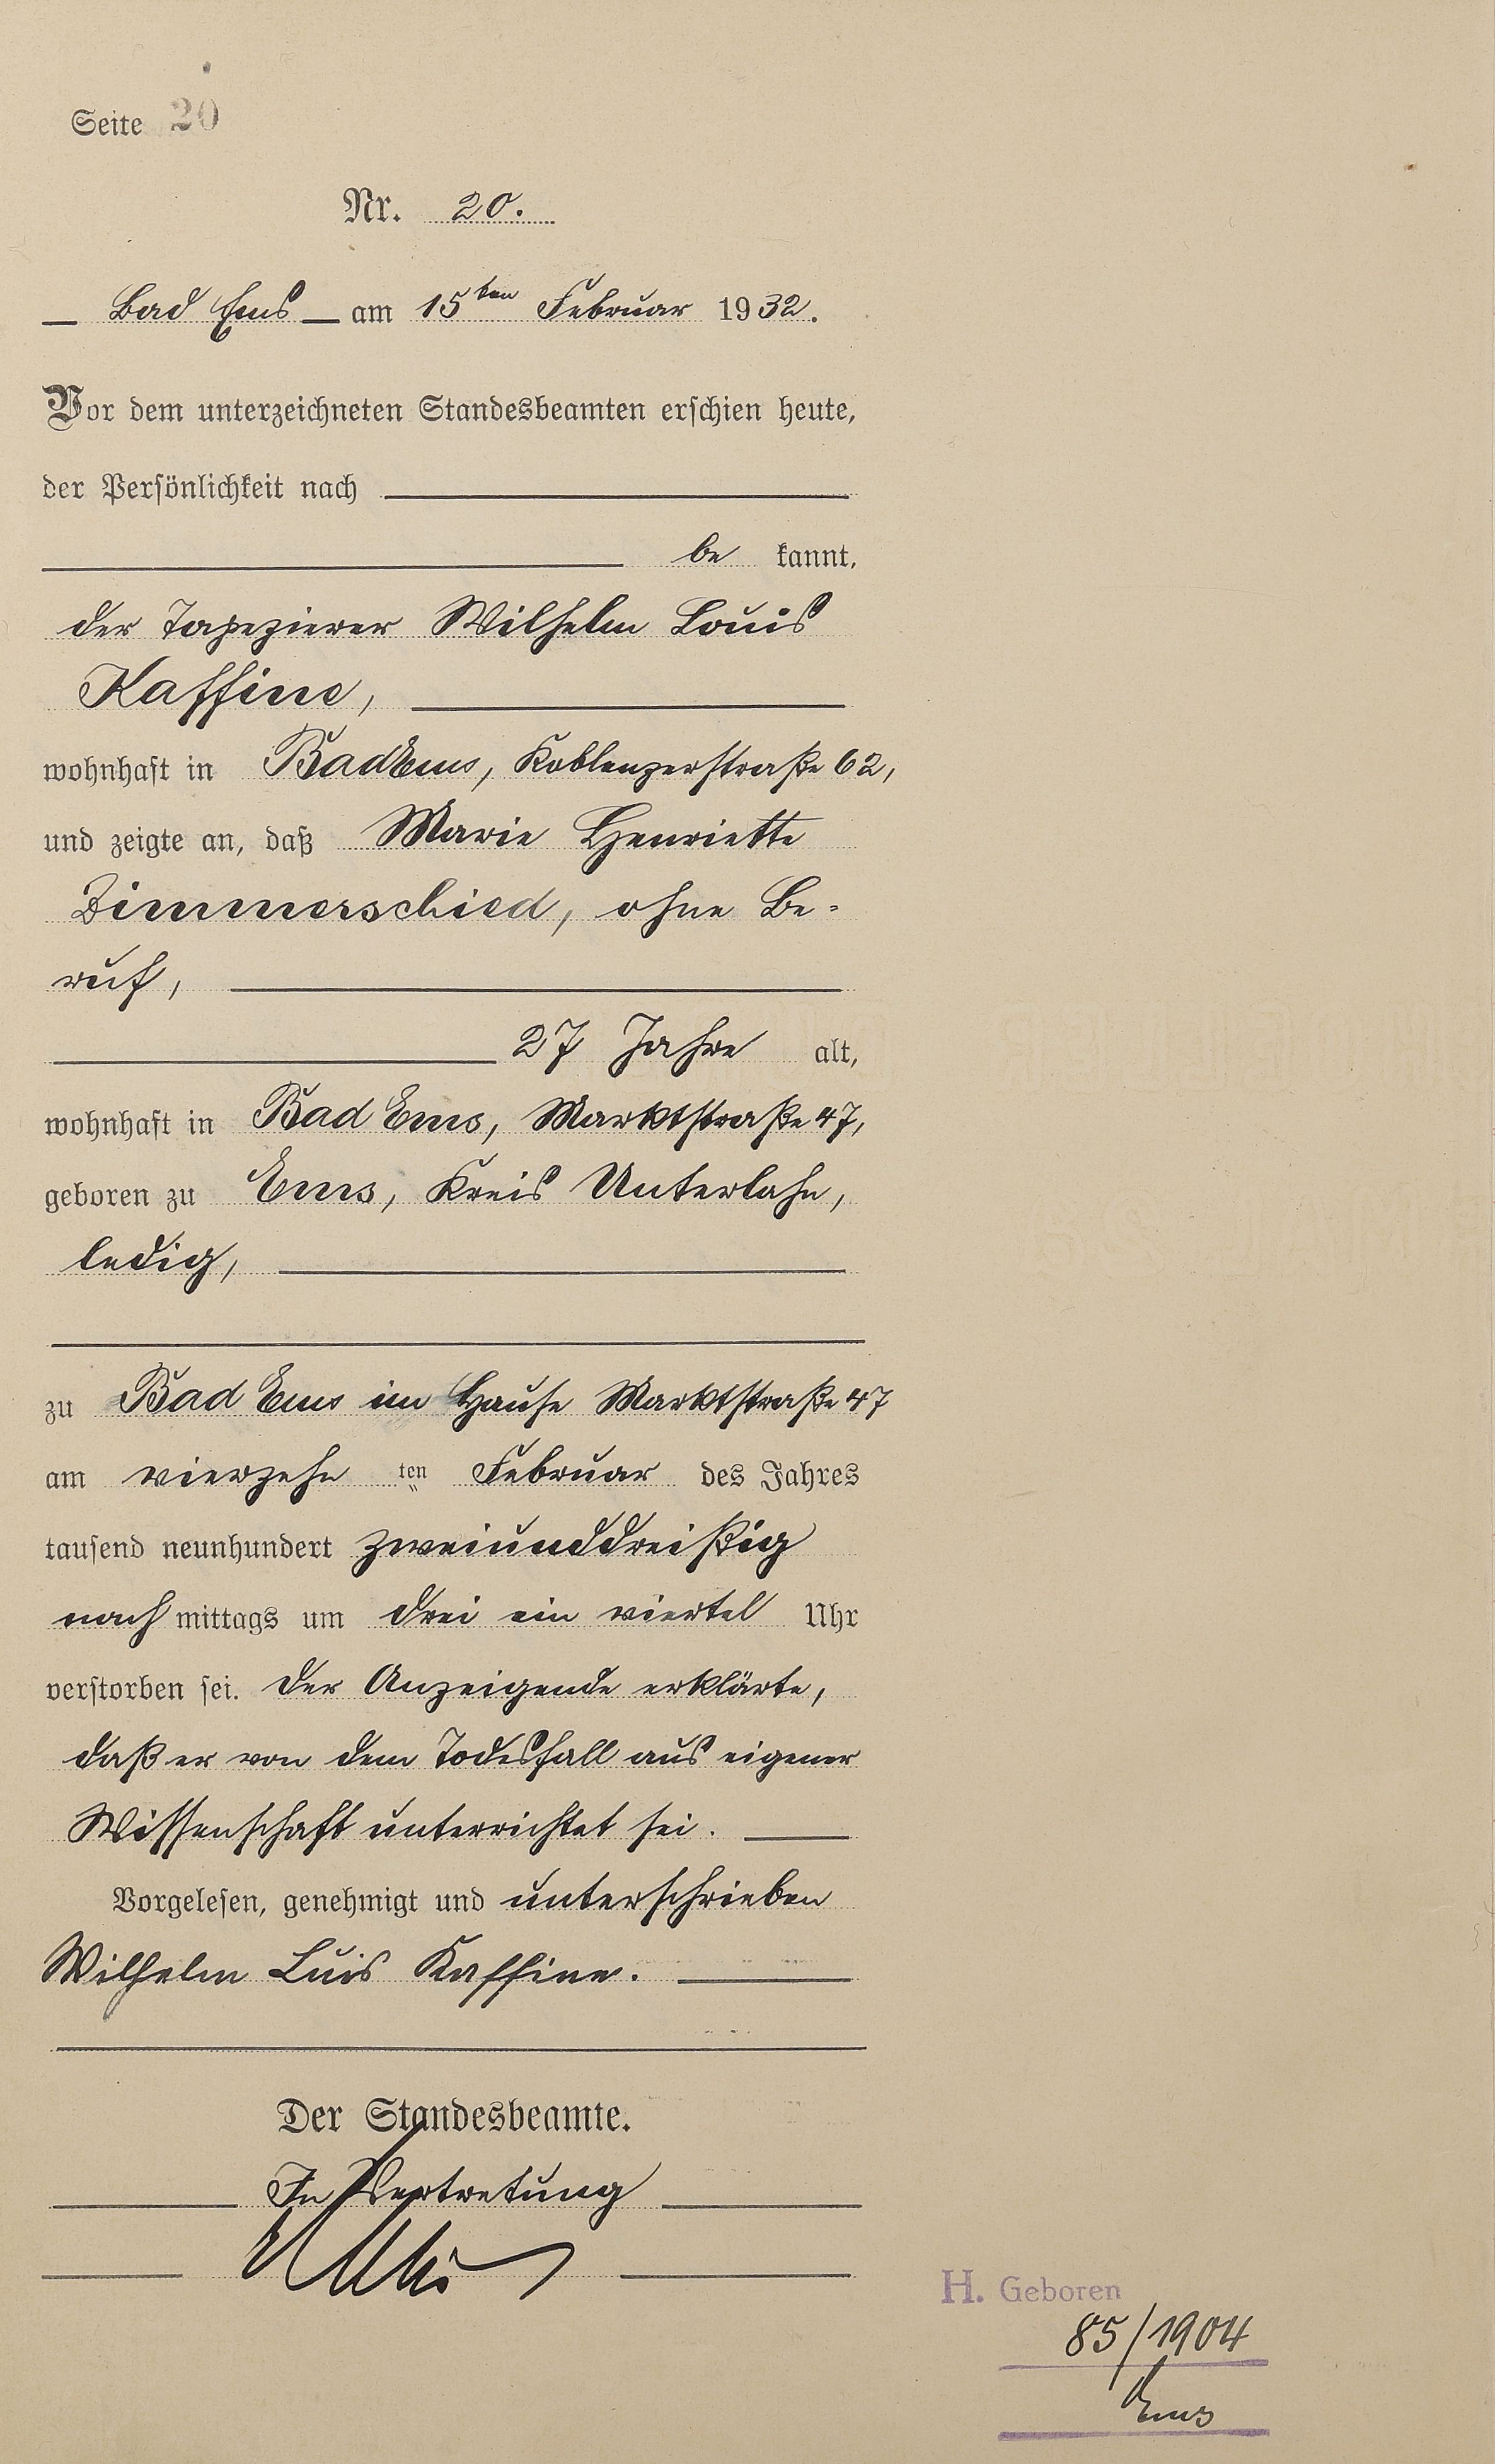 Seite 20
Nr. 20.
Bad Ems am 15ten Februar 1932.
Vor dem unterzeichneten Standesbeamten erschien heute,
der Persönlichkeit nach
be kannt,
der Tapezierer Wilhelm Louis
Kaffine,
wohnhaft in Bad Ems, Koblenzerstraße 62,
und zeigte an, daß Marie Henriette
Zimmerschied, ohne Be-
ruf,
27 Jahre alt,
wohnhaft in Bad Ems, Marktstraße 47,
geboren zu Ems, Kreis Unterlahn,
ledig,
zu Bad Ems im Hause Marktstraße 47
am vierzehn ten Februar des Jahres
tausend neunhundert zweiunddreißig
nach mittags um drei ein viertel Uhr
verstorben sei. Der Anzeigende erklärte,
daß er von dem Todesfall aus eigener
Wissenschaft unterrichtet sei.
Vorgelesen, genehmigt und unterschrieben
Wilhelm Luis Kaffine.
Der Standesbeamte.
In Vertretung
H. Geboren
85/1904
Ems